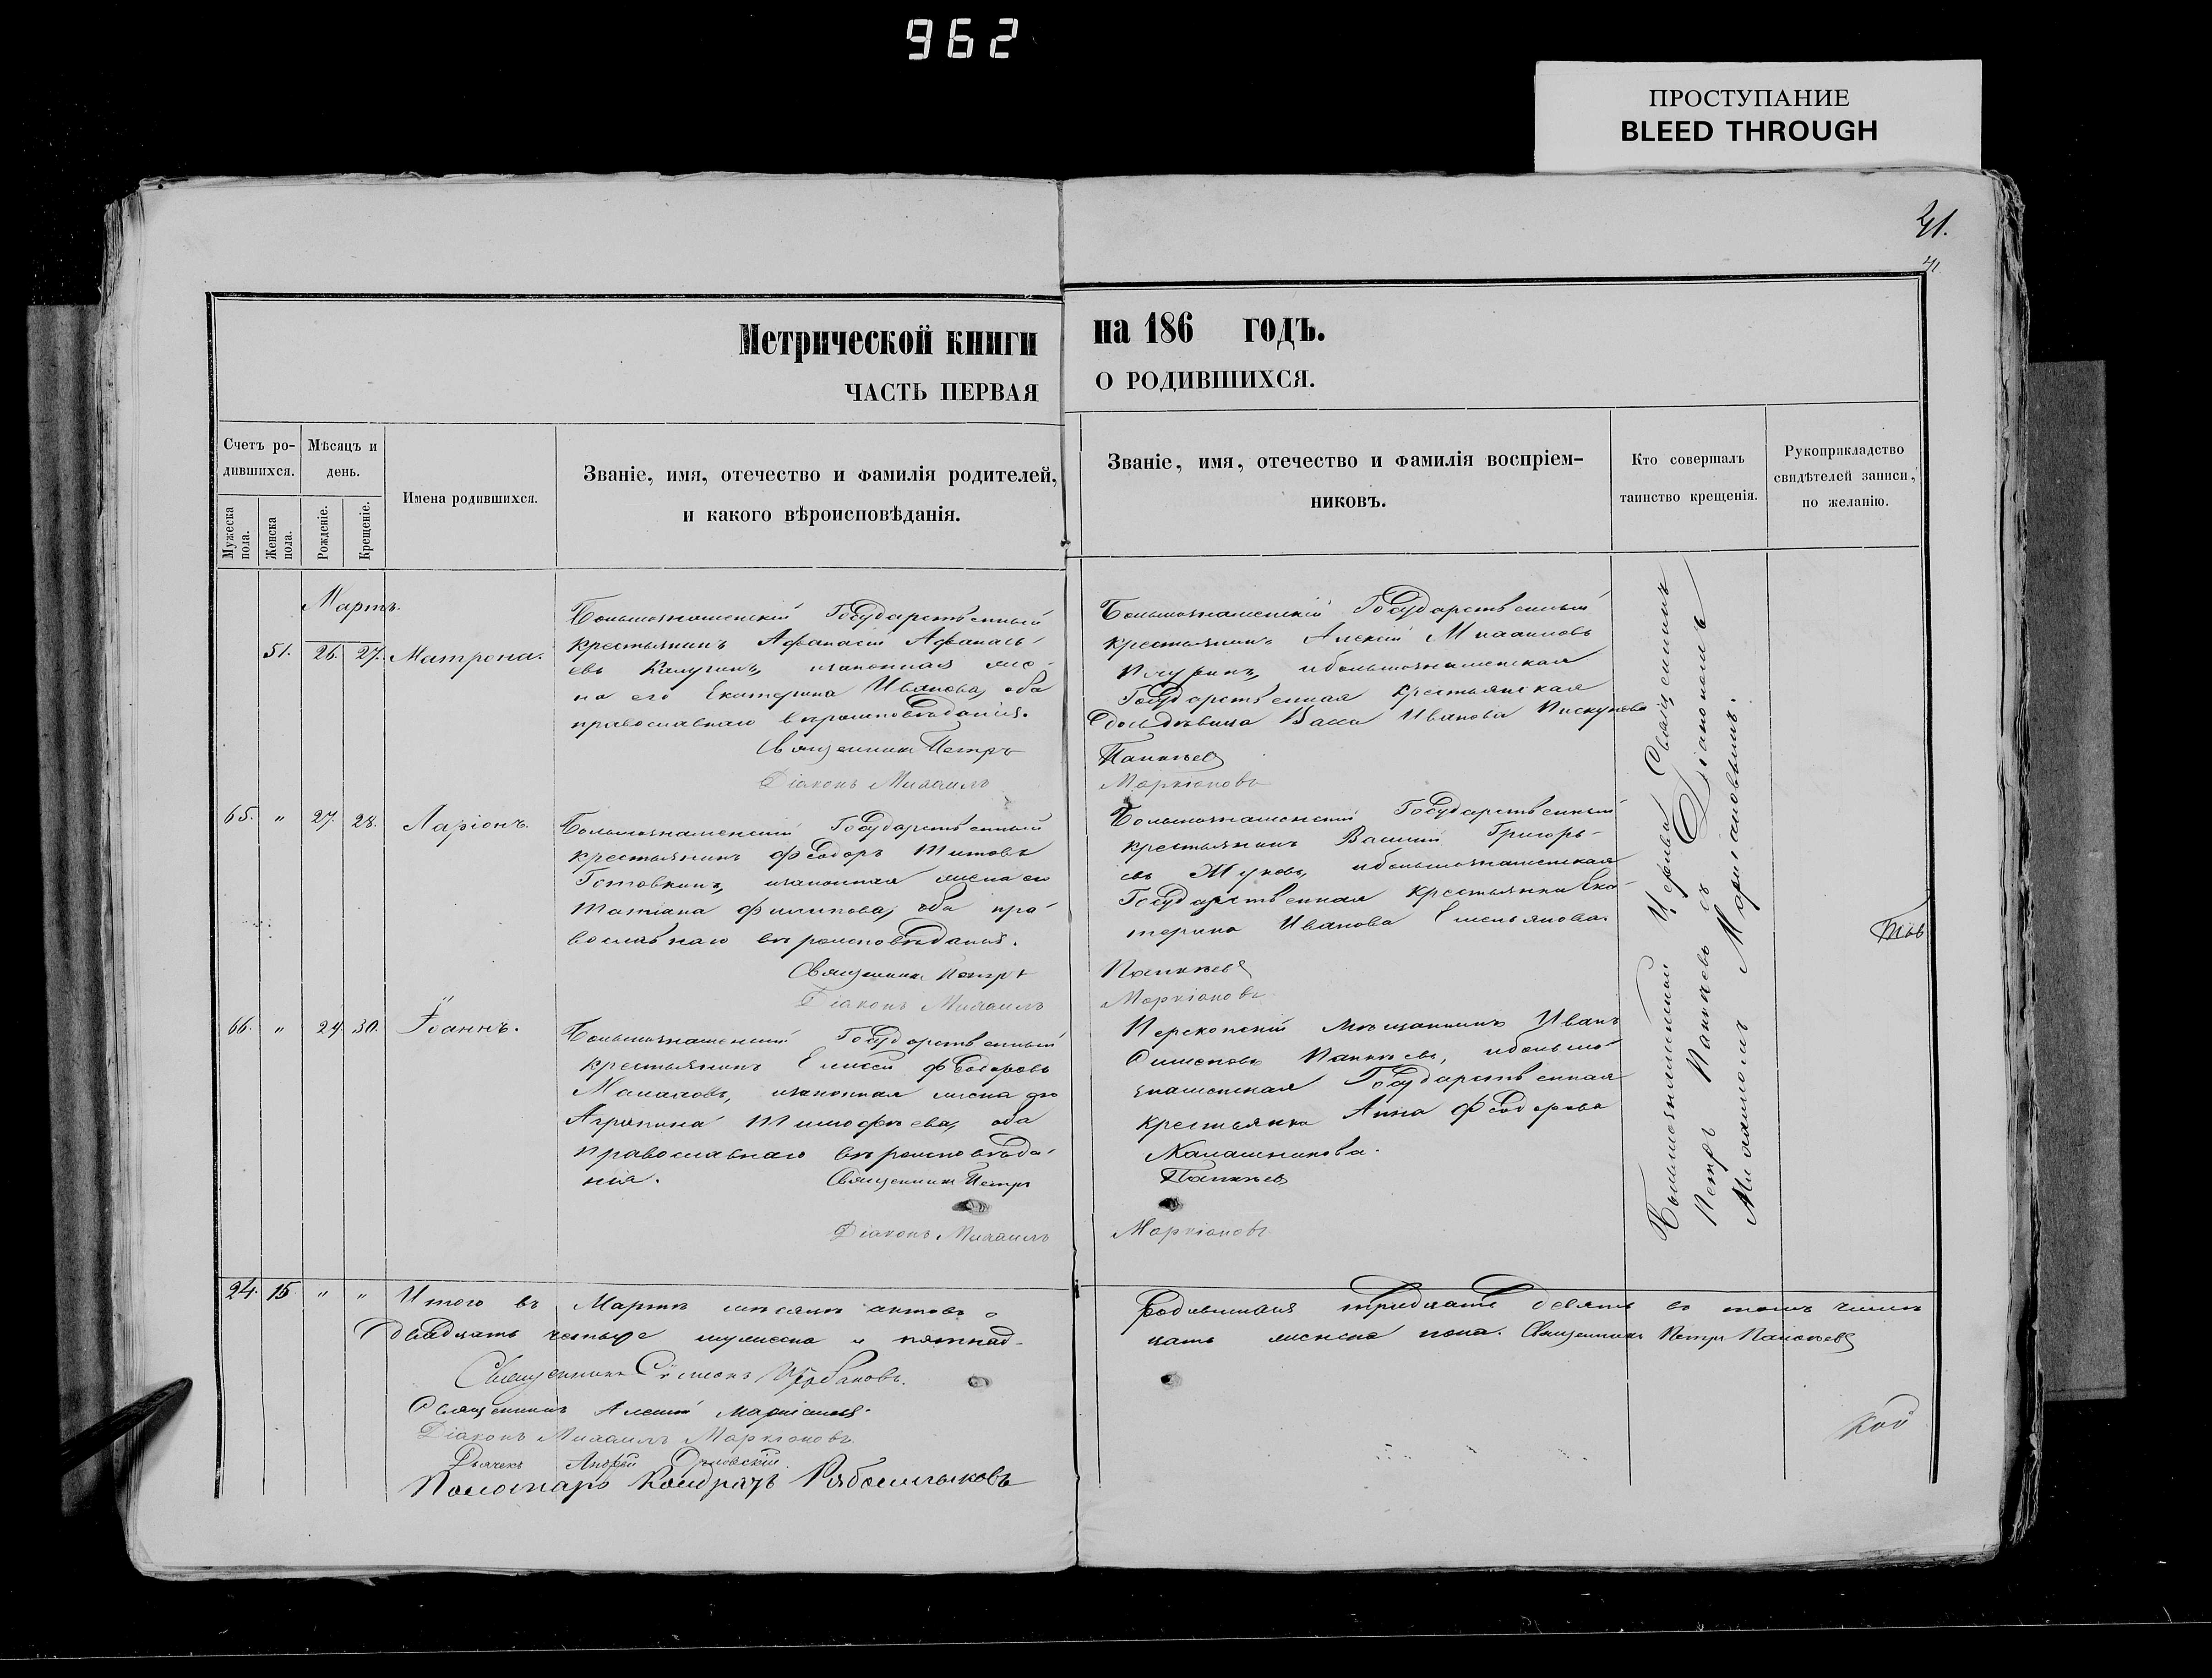 962
ПРОСТУПАНИЕ
BLEED THROUGH
41.
41
Метрической книги на 186 годъ.
ЧАСТЬ ПЕРВАЯ О РОДИВШИХСЯ.
Счетъ родившихся.
Мужеска пола.
Женска пола.
Мѣсяцъ и день.
Рожденіе.
Крещеніе.
Имена родившихся.
Званіе, имя, отечество и фамилія родителей,
и какого вѣроисповѣданія.
Званіе, имя, отечество и фамилія воспріем-
никовъ.
Кто совершалъ
таинство крещенія.
Рукоприкладство
свидѣтелей записи,
по желанію.
Мартъ.
51. 26. 27. Матрона.
Большезнаменскій Государственный
крестьянинъ Афанасій Афанась-
евъ изаконная же-
на его Екатерина Иванова, оба
православнаго вѣроисповѣданія.
Священникъ Петръ
Діаконъ Михаилъ
Большезнаменскій Государственный
крестьянинъ Алексій Михаиловъ
ибольшезнаменская
Государственная крестьянская
дочь дѣвица Васса Иванова Пискунова
Панкѣевъ
Маркіановъ
65. " 27. 28. Ларіонъ.
Большезнаменскій Государственный
крестьянинъ Феодоръ Титовъ
изаконная жена его
Татіана Филипова, оба пра-
вославнаго вѣроисповѣданія.
Священникъ Петръ
Діаконъ Михаилъ
Большезнаменскій Государственный
крестьянинъ Василій Григорь-
евъ Жуковъ, ибольшезнаменская
Государственная крестьянка Ека-
терина Иванова Емельянова
Панкѣевъ
Маркіановъ
66. " 29. 30. Іоаннъ.
Большезнаменскій Государственный
крестьянинъ Елисей Феодоровъ
изаконная жена его
Агрипина Тимофѣева, оба
православнаго вѣроисповѣда-
нія. Священникъ Петръ
Діаконъ Михаилъ
Перекопскій мѣщанинъ Иванъ
Панкѣевъ, ибольше-
знаменская Государственная
крестьянка Анна Феодорова
Калашникова.
Панкѣевъ
Маркіановъ
Большезнаменской Церкви Священникъ
Петръ Панкѣевъ съ Діакономъ
Михаиломъ Маркіановымъ.
24. 15. " " Итого въ Мартѣ мѣсяцѣ актовъ о родившихся тридцать девять въ томъ числѣ
двадцать четыре мужеска и пятнад-
цать женска пола. Священникъ Петръ Панкѣевъ
Священникъ Сѵмеонъ Щербаковъ.
Священникъ Алексій Маркіановъ.
Діаконъ Михаилъ Маркіановъ.
Дьячекъ Андрей Орловскій.
Пономарь Кондратъ Рябошлыковъ